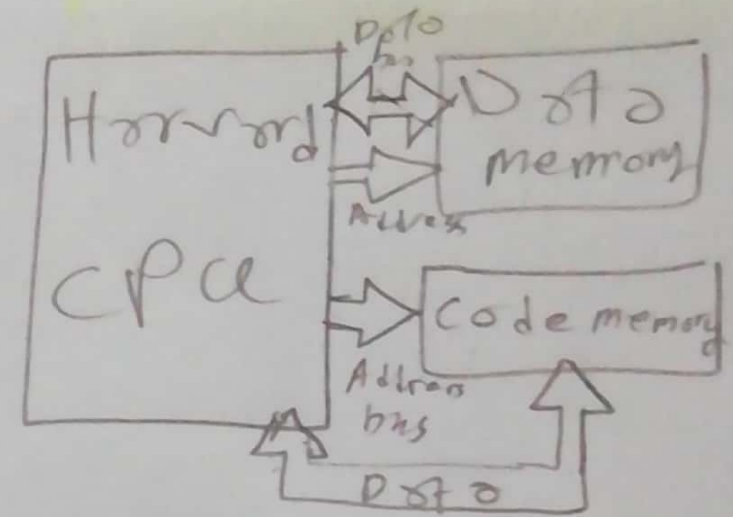 Data
bus
Harvard
CPU
Data
memory
Address
Code memory
Address
bus
Data